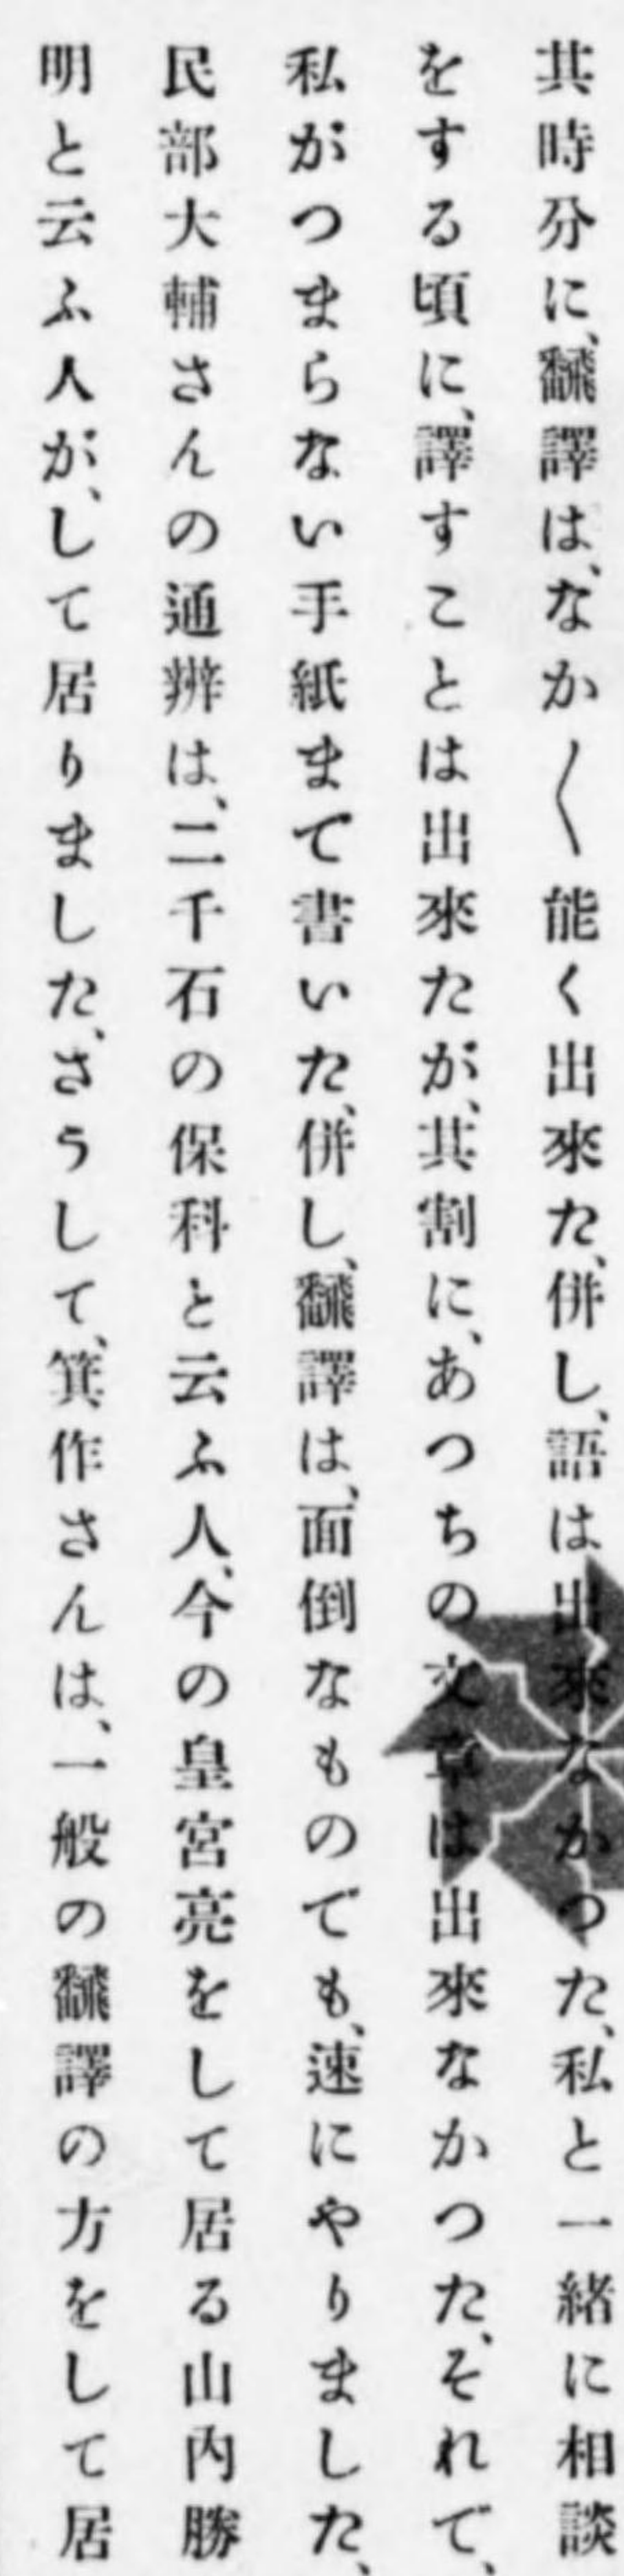 其時分に、飜譯は、なか〱能く出來た、併し、語は出來なかつた、私と一緒に相談
をする頃に、譯すことは出來たが、其割に、あつちの文章は出來なかつた、それで、
私がつまらない手紙まで書いた、併し、飜譯は、面倒なものでも、速にやりました、
民部大輔さんの通辨は、二千石の保科と云ふ人、今の皇宮亮をして居る山内勝
明と云ふ人が、して居りました、さうして、箕作さんは、一般の飜譯の方をして居